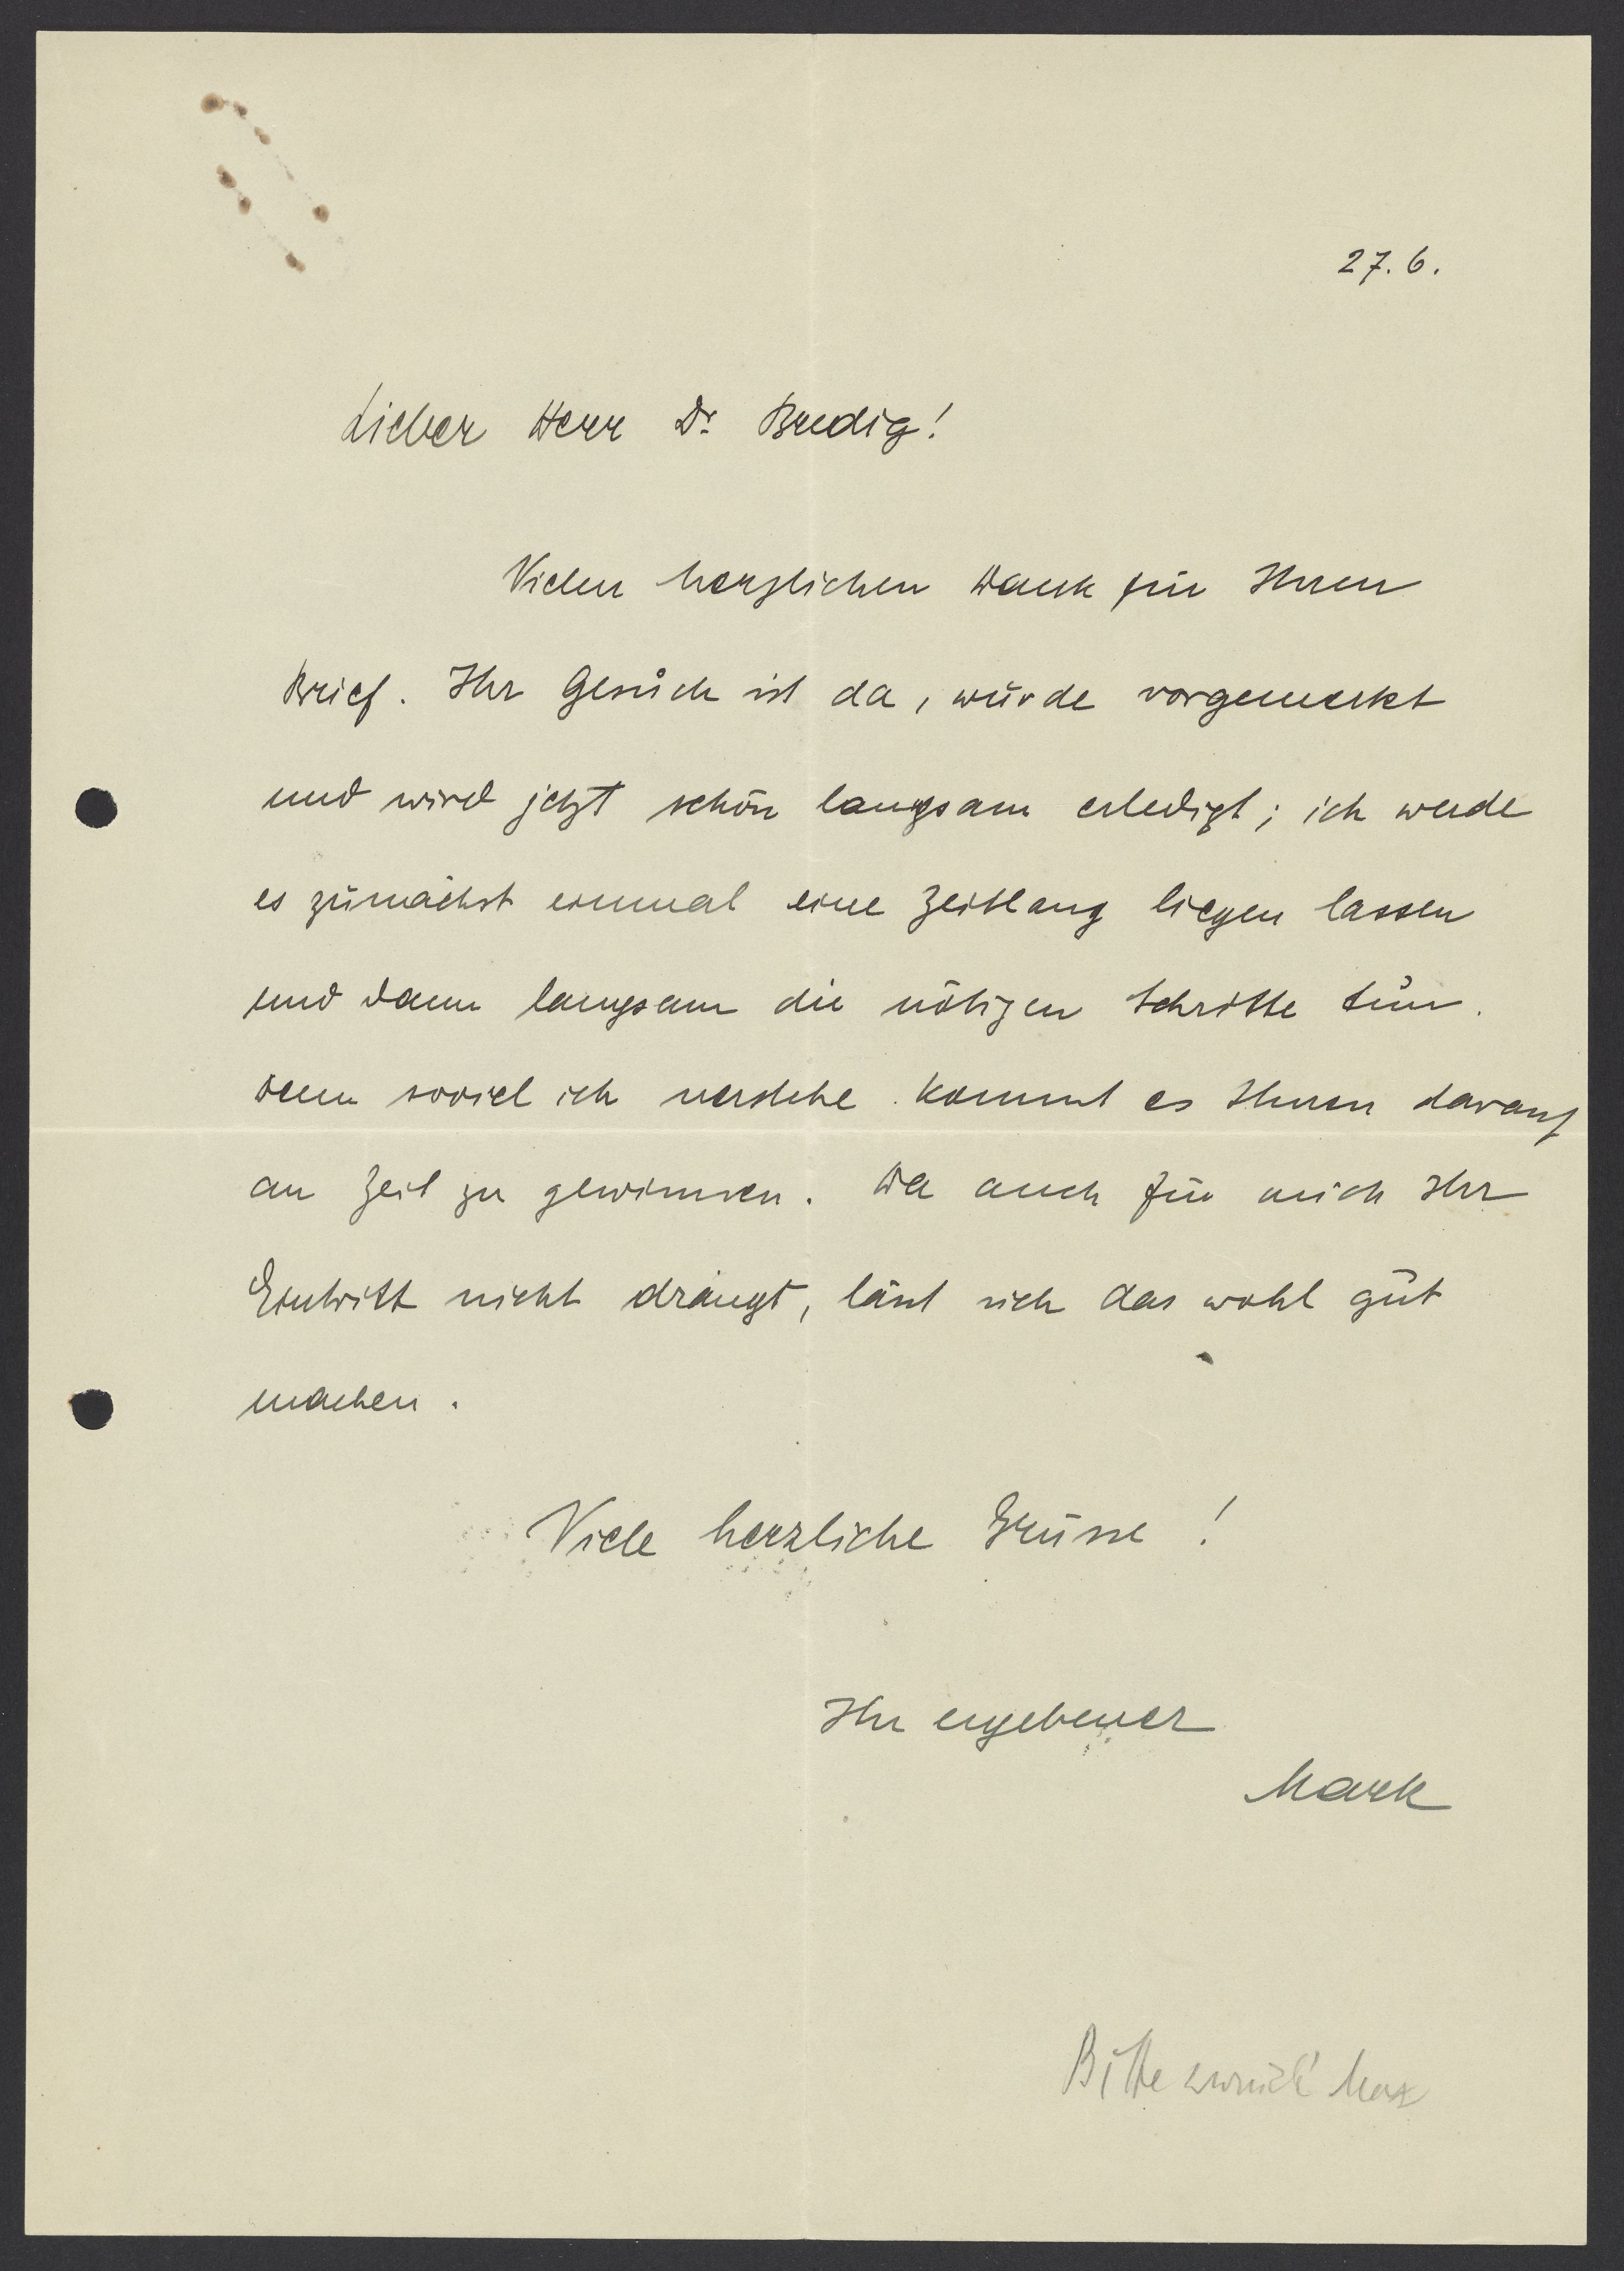 27.6.
Lieber Herr Dr. Bredig!
Vielen herzlichen Dank für Ihren
Brief. Ihr Gesuch ist da, wurde vorgemerkt
und wird jetzt schön langsam erledigt; ich werde
es zunächst einmal eine Zeitlang liegen lassen
und dann langsam die nötigen Schritte tun.
Denn soviel ich verstehe kommt es Ihnen darauf
an Zeit zu gewinnen. Da auch für mich Ihr
Eintritt nicht drängt, lässt sich das wohl gut
machen.
Viele herzliche Grüsse!
Ihr ergebener
Mark
Bitte zurück Max